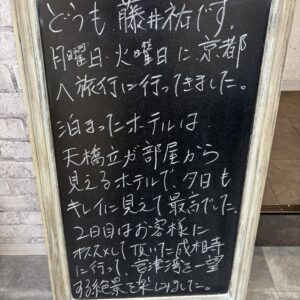 どうも、藤井祐です。
月曜日・火曜日に、京都
へ旅行に行ってきました。
泊まったホテルは
天橋立が部屋から
見えるホテルで、夕日も
キレイに見えて最高でした。
2日目はお客様に
オススメして頂いた成相寺
に行って、宮津湾を一望
する絶景を楽しみました。